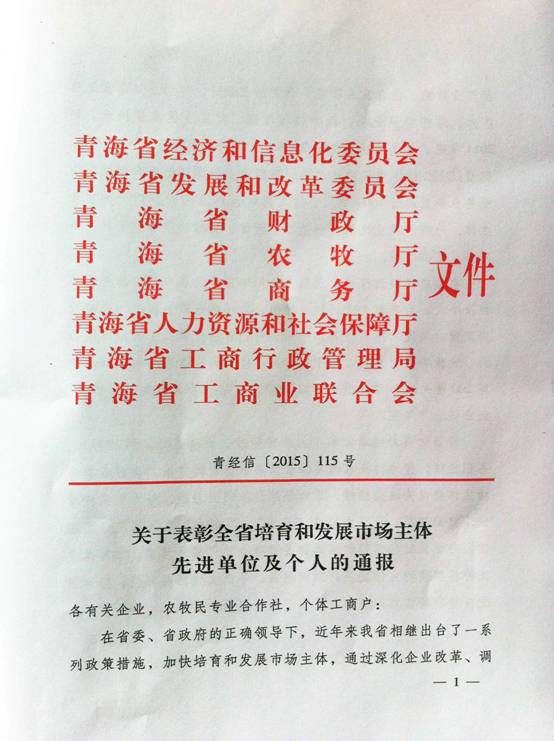 青海省经济和信息化委员会
青海省发展和改革委员会
青海省财政厅
青海省农牧厅
青海省商务厅
青海省人力资源和社会保障厅
青海省工商行政管理局
青海省工商业联合会
文件
青经信〔2015〕115号
关于表彰全省培育和发展市场主体
先进单位及个人的通报
各有关企业，农牧民专业合作社，个体工商户：
在省委、省政府的正确领导下，近年来我省相继出台了一系
列政策措施，加快培育和发展市场主体，通过深化企业改革、调
— 1 —